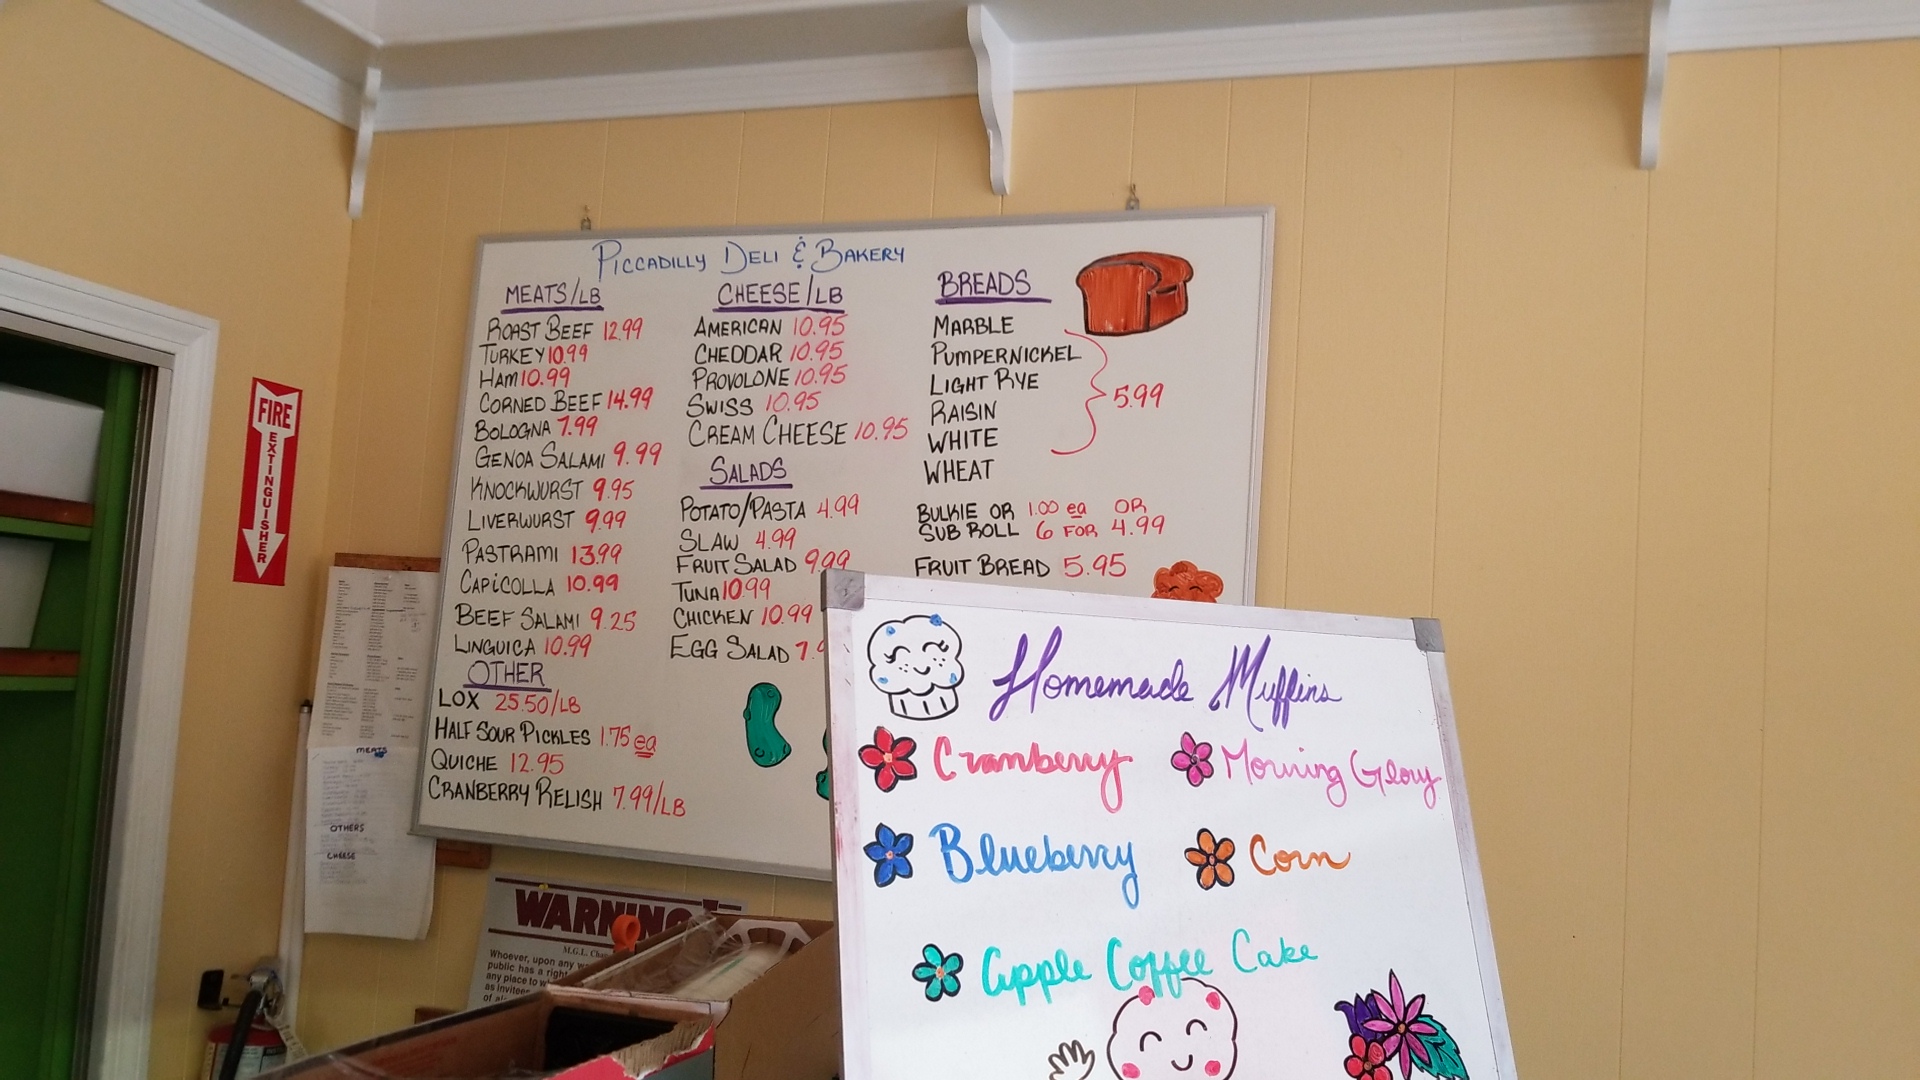 PICCADILLY DELI & BAKERY
MEATS/LB
ROAST BEEF 12.99
TURKEY 10.99
HAM 10.99
CORNED BEEF 14.99
BOLOGNA 7.99
GENOA SALAMI 9.99
KNOCKWURST 9.95
LIVERWURST 9.99
PASTRAMI 13.99
CAPiCOLLA 10.99
BEEF SALAMI 9.25
LINGUICA 10.99
OTHER
LOX 25.50/LB
HALF SOUR PICKLES 1.75 ea
QUICHE 12.95
CRANBERRY RELISH 7.99/LB
CHEESE/LB
AMERICAN 10.95
CHEDDAR 10.95
PROVOLONE 10.95
SWISS 10.95
CREAM CHEESE 10.95
SALADS
POTATO/PASTA 4.99
SLAW 4.99
FRUIT SALAD 9.99
TUNA 10.99
CHICKEN 10.99
EGG SALAD
BREADS
MARBLE
PUMPERNICKEL
LIGHT RYE
RAISIN
WHITE
WHEAT
5.99
BULKIE OR 1.00 ea OR
SUB ROLL 6 FOR 4.99
FRUIT BREAD 5.95
Homemade Muffins
Cranberry
Morning Glory
Blueberry
Corn
Apple Coffee Cake
FIRE
EXTINGUISHER
MEATS
OTHERS
CHEESE
WARNING
M.G.L.
Whoever, upon any
public has a right
any place to
as invitees
of